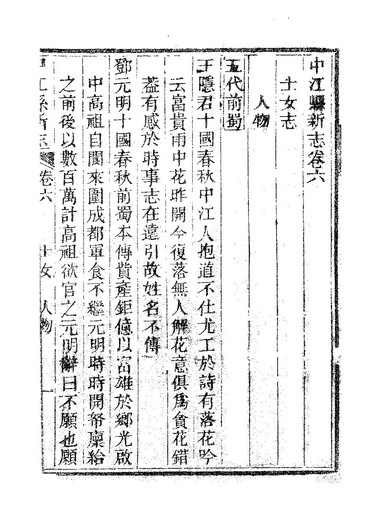 中江縣新志卷六
士女志
人物
五代前蜀
王隱君十國春秋中江人抱道不仕尤工於詩有落花吟
云富貴雨中花昨開今復落無人解花意俱爲貪花錯
蓋有感於時事志在遠引故姓名不傳
鄧元明十國春秋前蜀本傳貲產鉅億以富雄於鄉光啟
中高祖自閬來圍成都軍食不繼元明時時開帑廩給
之前後以數百萬計高祖欲官之元明辭曰不願也願
中江縣新志 卷六 士女 人物 一